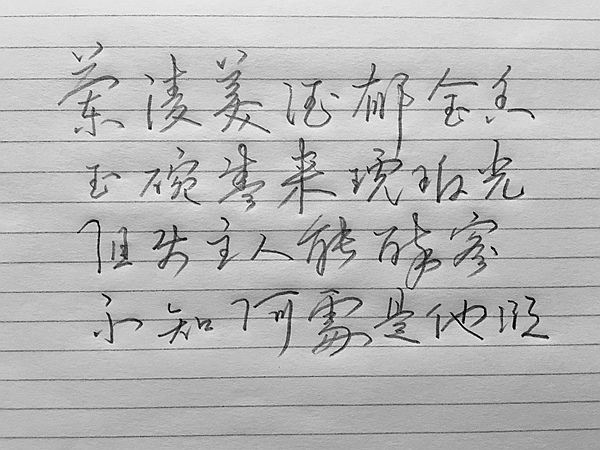 蘭陵美酒郁金香
玉碗盛来琥珀光
但使主人能醉客
不知何處是他鄉